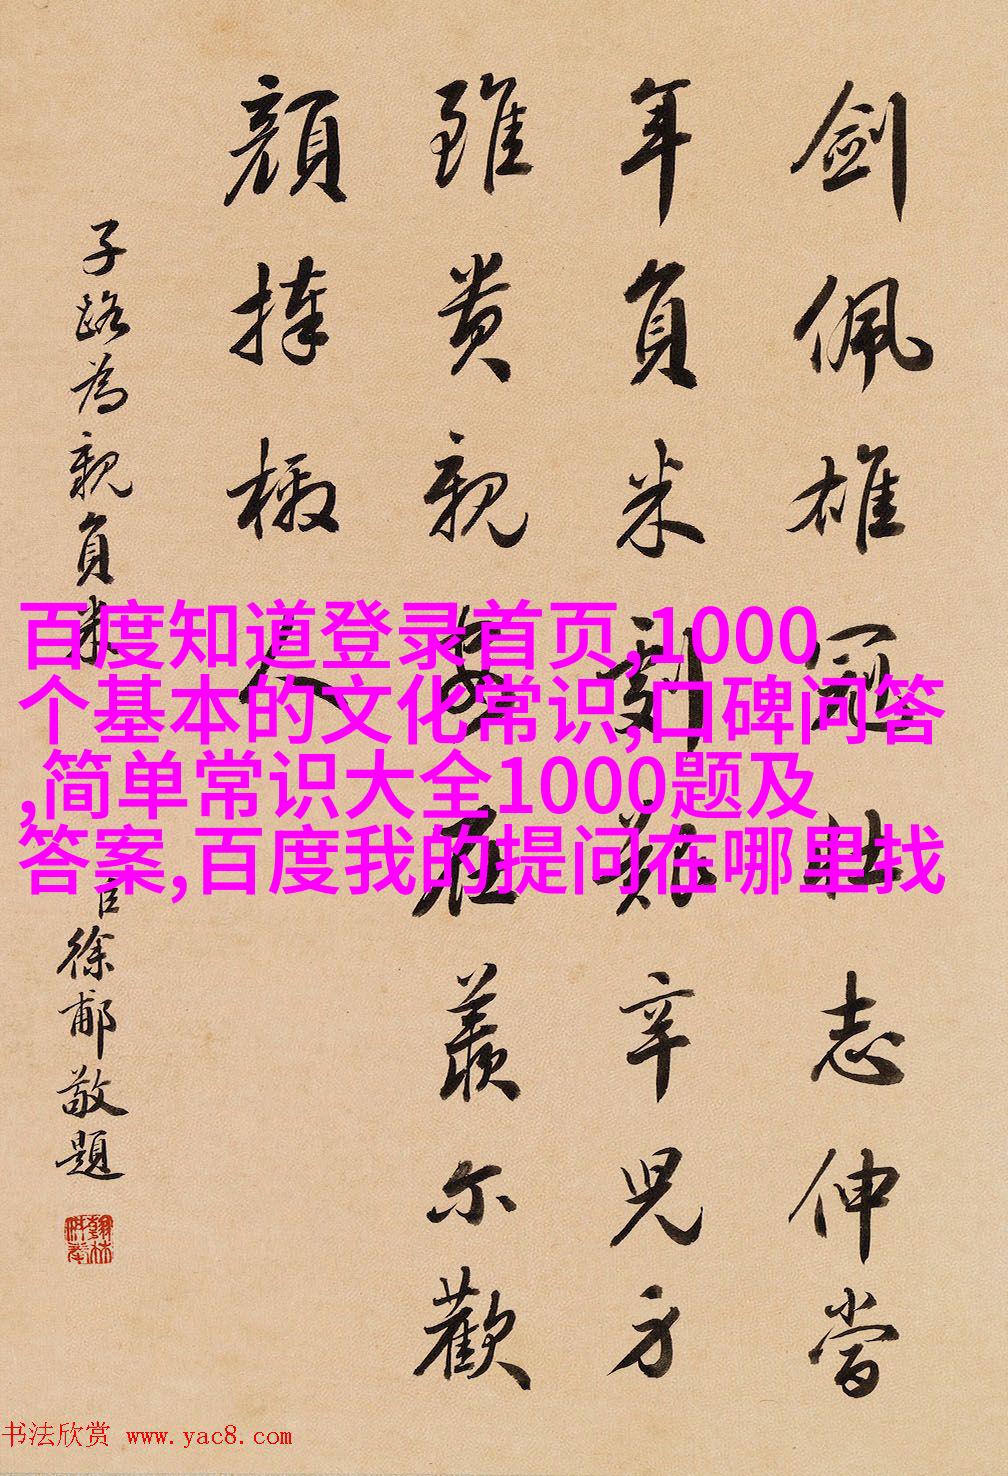 剑佩雄冠壮志伸当
年负米剧难辛児方
雖贵親
羨尔歡
顔捧檄人
子路為親負米
徐郙敬題
百度知道登录首页,1000
个基本的文化常识,口碑问答
,简单常识大全1000题及
答案,百度我的提问在哪里找
书法欣赏 www.yac8.com